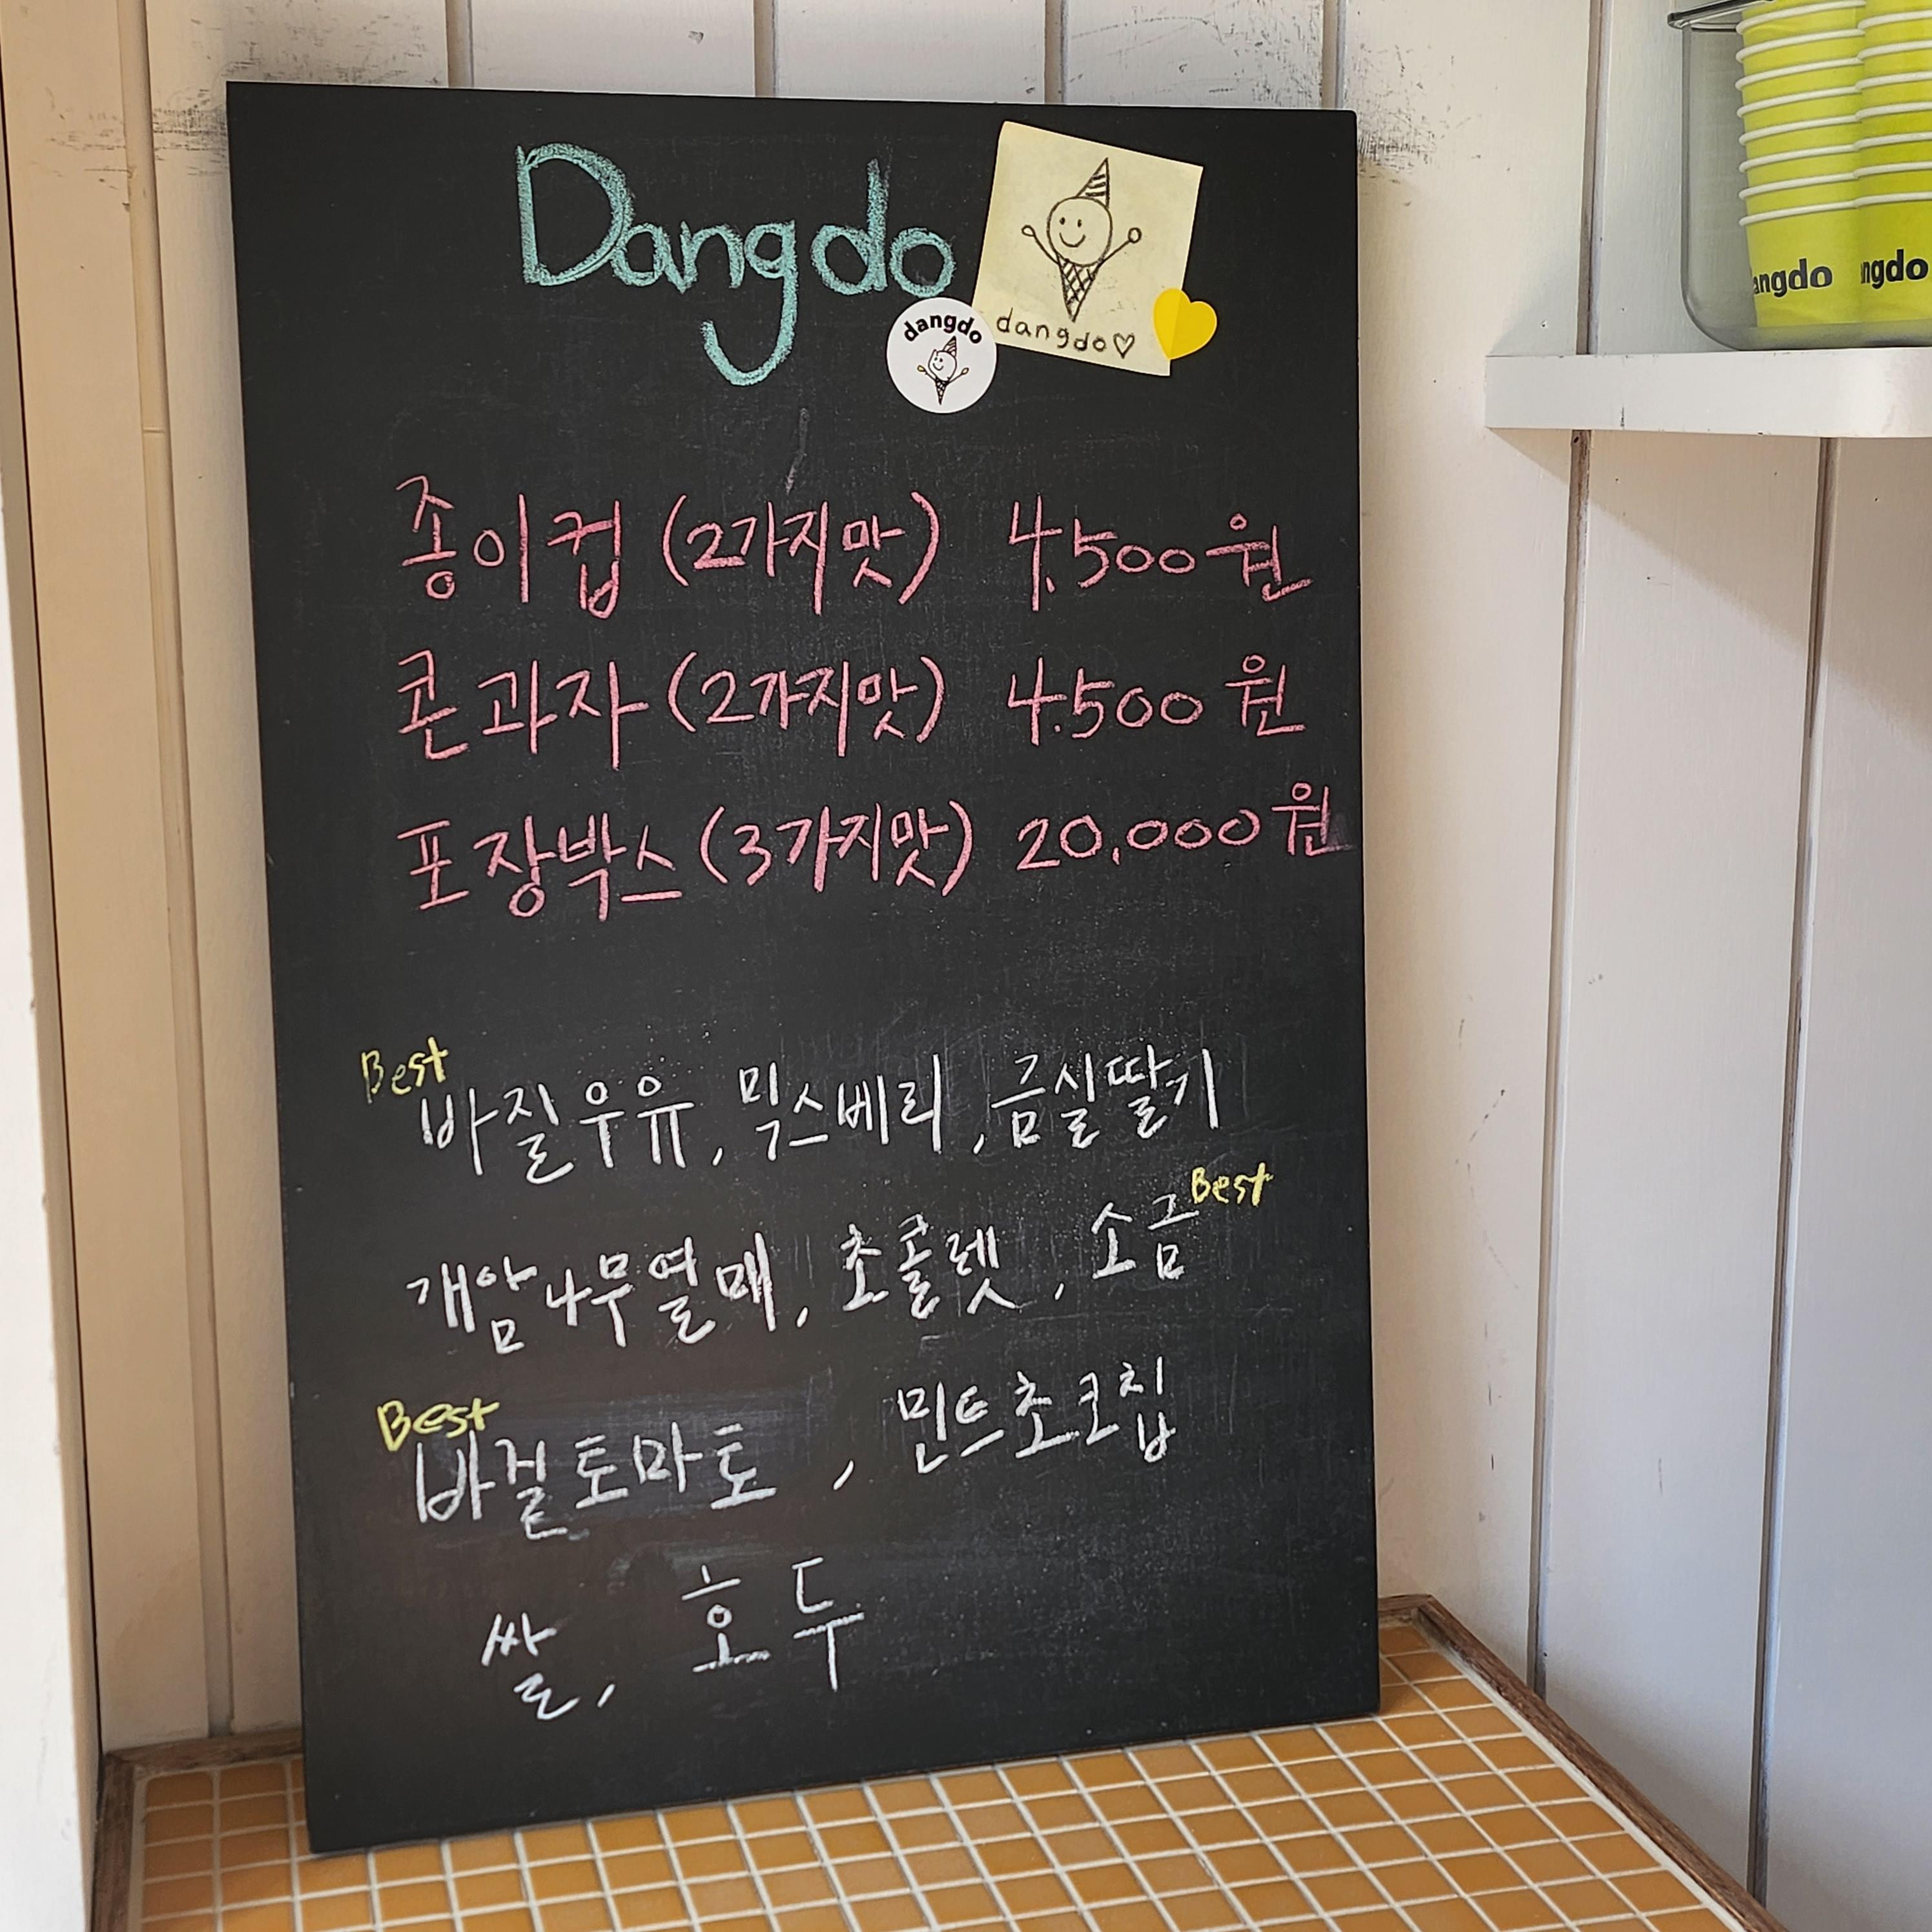 Dangdo
dangdo♡
dangdo
종이컵 (2가지맛) 4,500원
콘과자 (2가지맛) 4.500원
포장박스 (3가지맛) 20,000원
Best
바질우유, 믹스베리, 금실딸기
Best
개암나무열매, 초콜렛, 소금
Best
바질토마토, 민트초코칩
쌀, 호두
angdo
ngdo